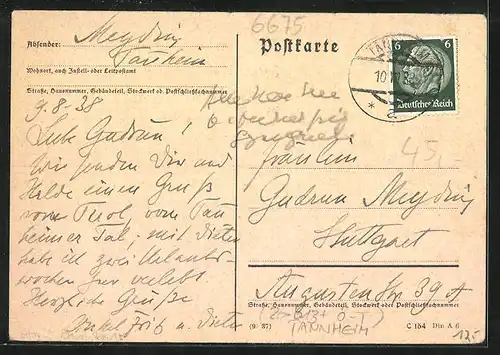 6675
Absender: Meyding
Tannheim
Wohnort, auch Zustell- oder Leitpostamt
Straße, Hausnummer, Gebäudeteil, Stockwerk od. Postschließfachnummer
9.8.38
Liebe Gudrun!
Wir senden Dir und
Hilde einen Gruß
vom Tirol, vom Tan
heimer Tal; mit Dieter
hab ich zwei Urlaubs-
wochen hier verlebt.
Herzliche Grüße
Onkel Fritz u. Dieter
Postkarte
6 6
Deutsches Reich
* a
45,-
Fräulein
Gudrun Meyding
Stuttgart
Augustenstr 39 A
Straße, Hausnummer, Gebäudeteil, Stockwerk oder Postschließfachnummer
TANNHEIM
(9 37)
C 154 Din A 6
12,-